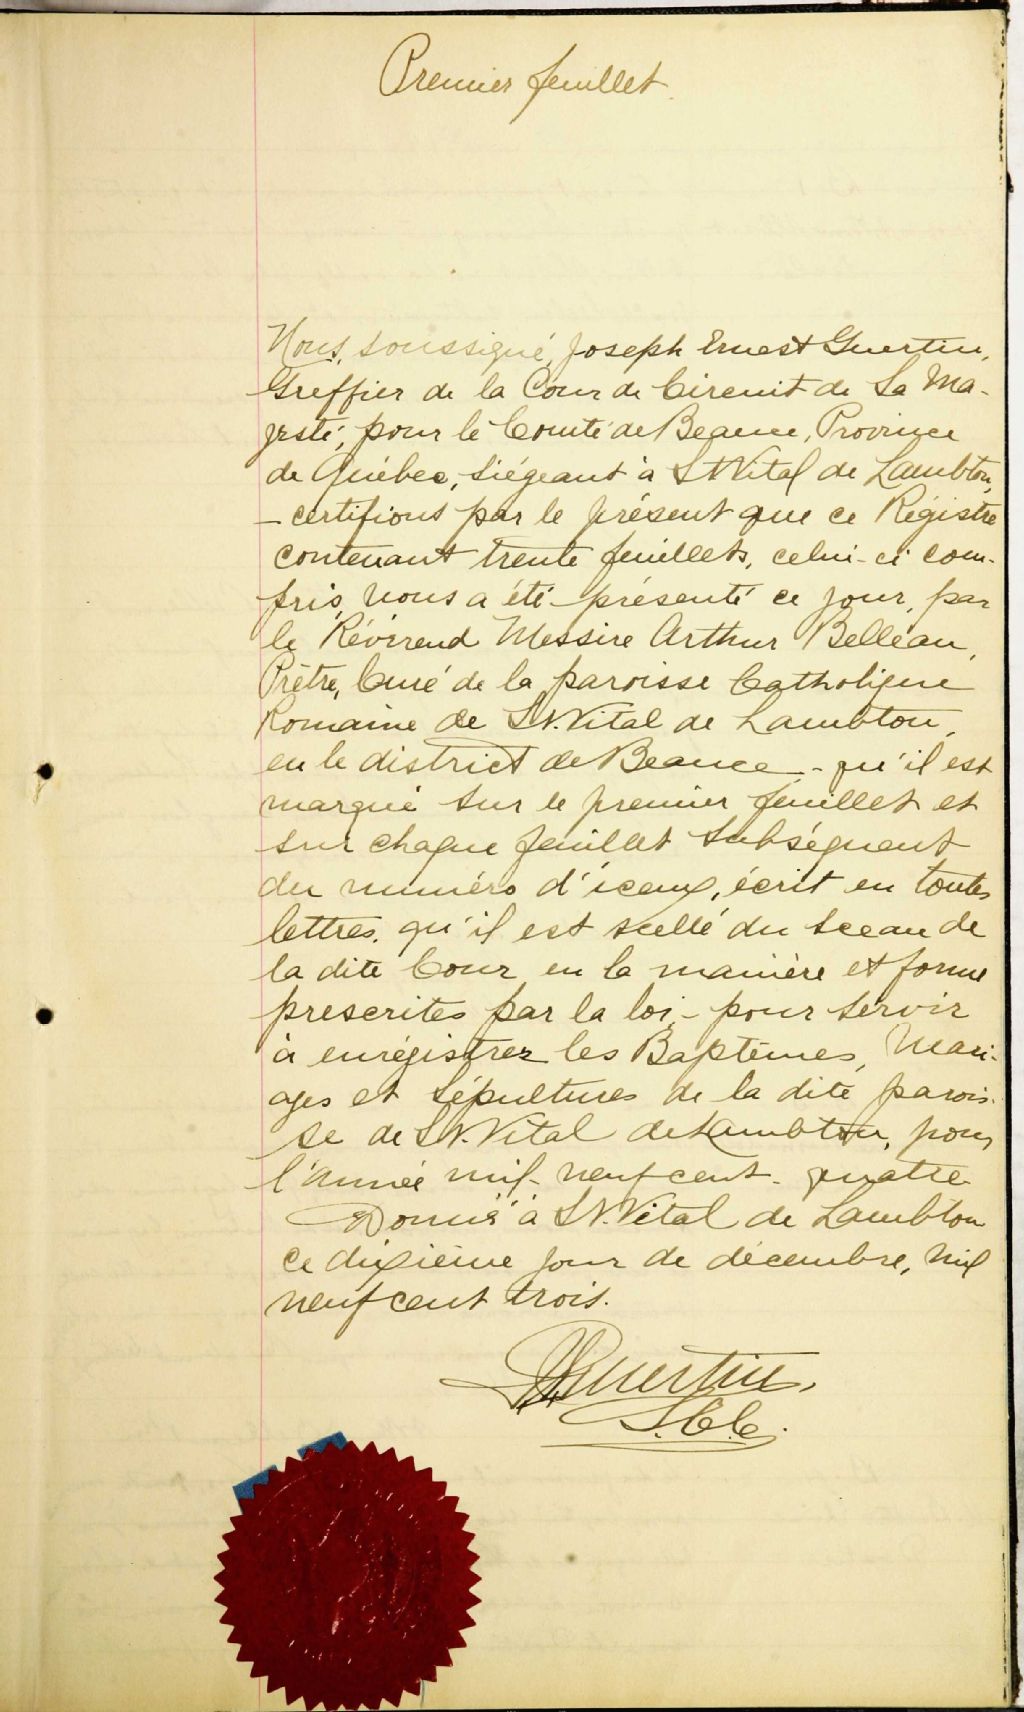 Premier feuillet.
Nous, soussigné, Joseph Ernest Guertin,
Greffier de la Cour de Circuit de Sa Ma-
jesté, pour le Comté de Beauce, Province
de Québec, siégeant à St Vital de Lambton,
- certifions par le présent que ce Régistre
contenant trente feuillets, celui-ci com-
pris, nous a été présenté ce jour, par
le Révérend Messire Arthur Belleau,
Prêtre, Curé de la paroisse Catholique
Romaine de St. Vital de Lambton,
en le district de Beauce - qu'il est
marqué sur le premier feuillet et
sur chaque feuillet subséquent
du numéro d'iceux, écrit en toutes
lettres, qu'il est scellé du sceau de
la dite Cour en la manière et forme
prescrites par la loi, - pour servir
à enrégistrer les Baptêmes, Mari-
ages et Sépultures de la dite parois-
se de St. Vital de Lambton, pour
l'année mil-neuf cent-quatre
Donné à St. Vital de Lambton
ce dixième jour de décembre, mil
neuf cent trois.
Guertin,
G.C.C.